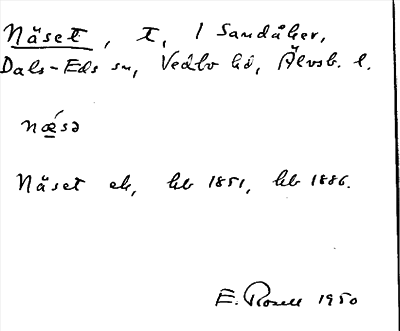 Näset, t, i Sandåker,
Dals-Eds sn, Vedbo hd, Älvsb. l.
næ´sə
Näset ek, hb 1851, hb 1886.
E. Rosell 1950